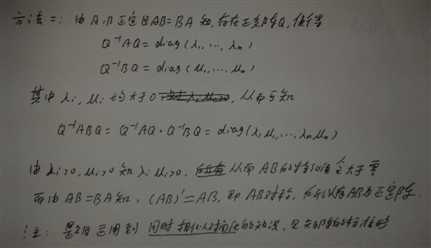 方法二:由A、B正定且AB=BA知,存在正交阵Q,使得
Q⁻¹AQ = diag(λ₁,…,λₙ)
Q⁻¹BQ = diag(μ₁,…,μₙ)
其中λᵢ,μᵢ均大于0,从而知
Q⁻¹ABQ = Q⁻¹AQ·Q⁻¹BQ = diag(λ₁μ₁,…,λₙμₙ)
由λᵢ>0,μᵢ>0知λᵢμᵢ>0,从而AB的特征值全大于零
而由AB=BA知,(AB)'=AB,即AB对称,所以AB为正定阵.
注:同时相似对角化的